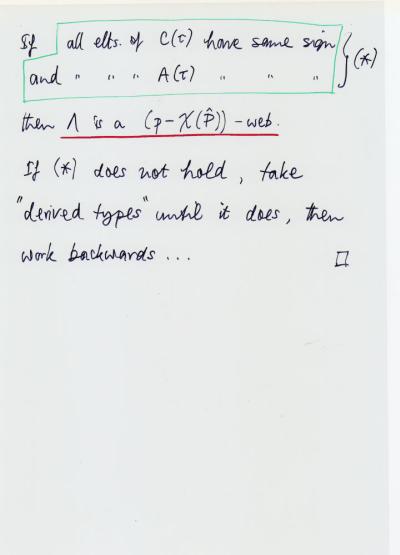 If all elts. of C(τ) have same sign } (*)
and " " " A(τ) " " "
then Λ is a (p-χ(P̂))-web.
If (*) does not hold, take
"derived types" until it does, then
work backwards ... □